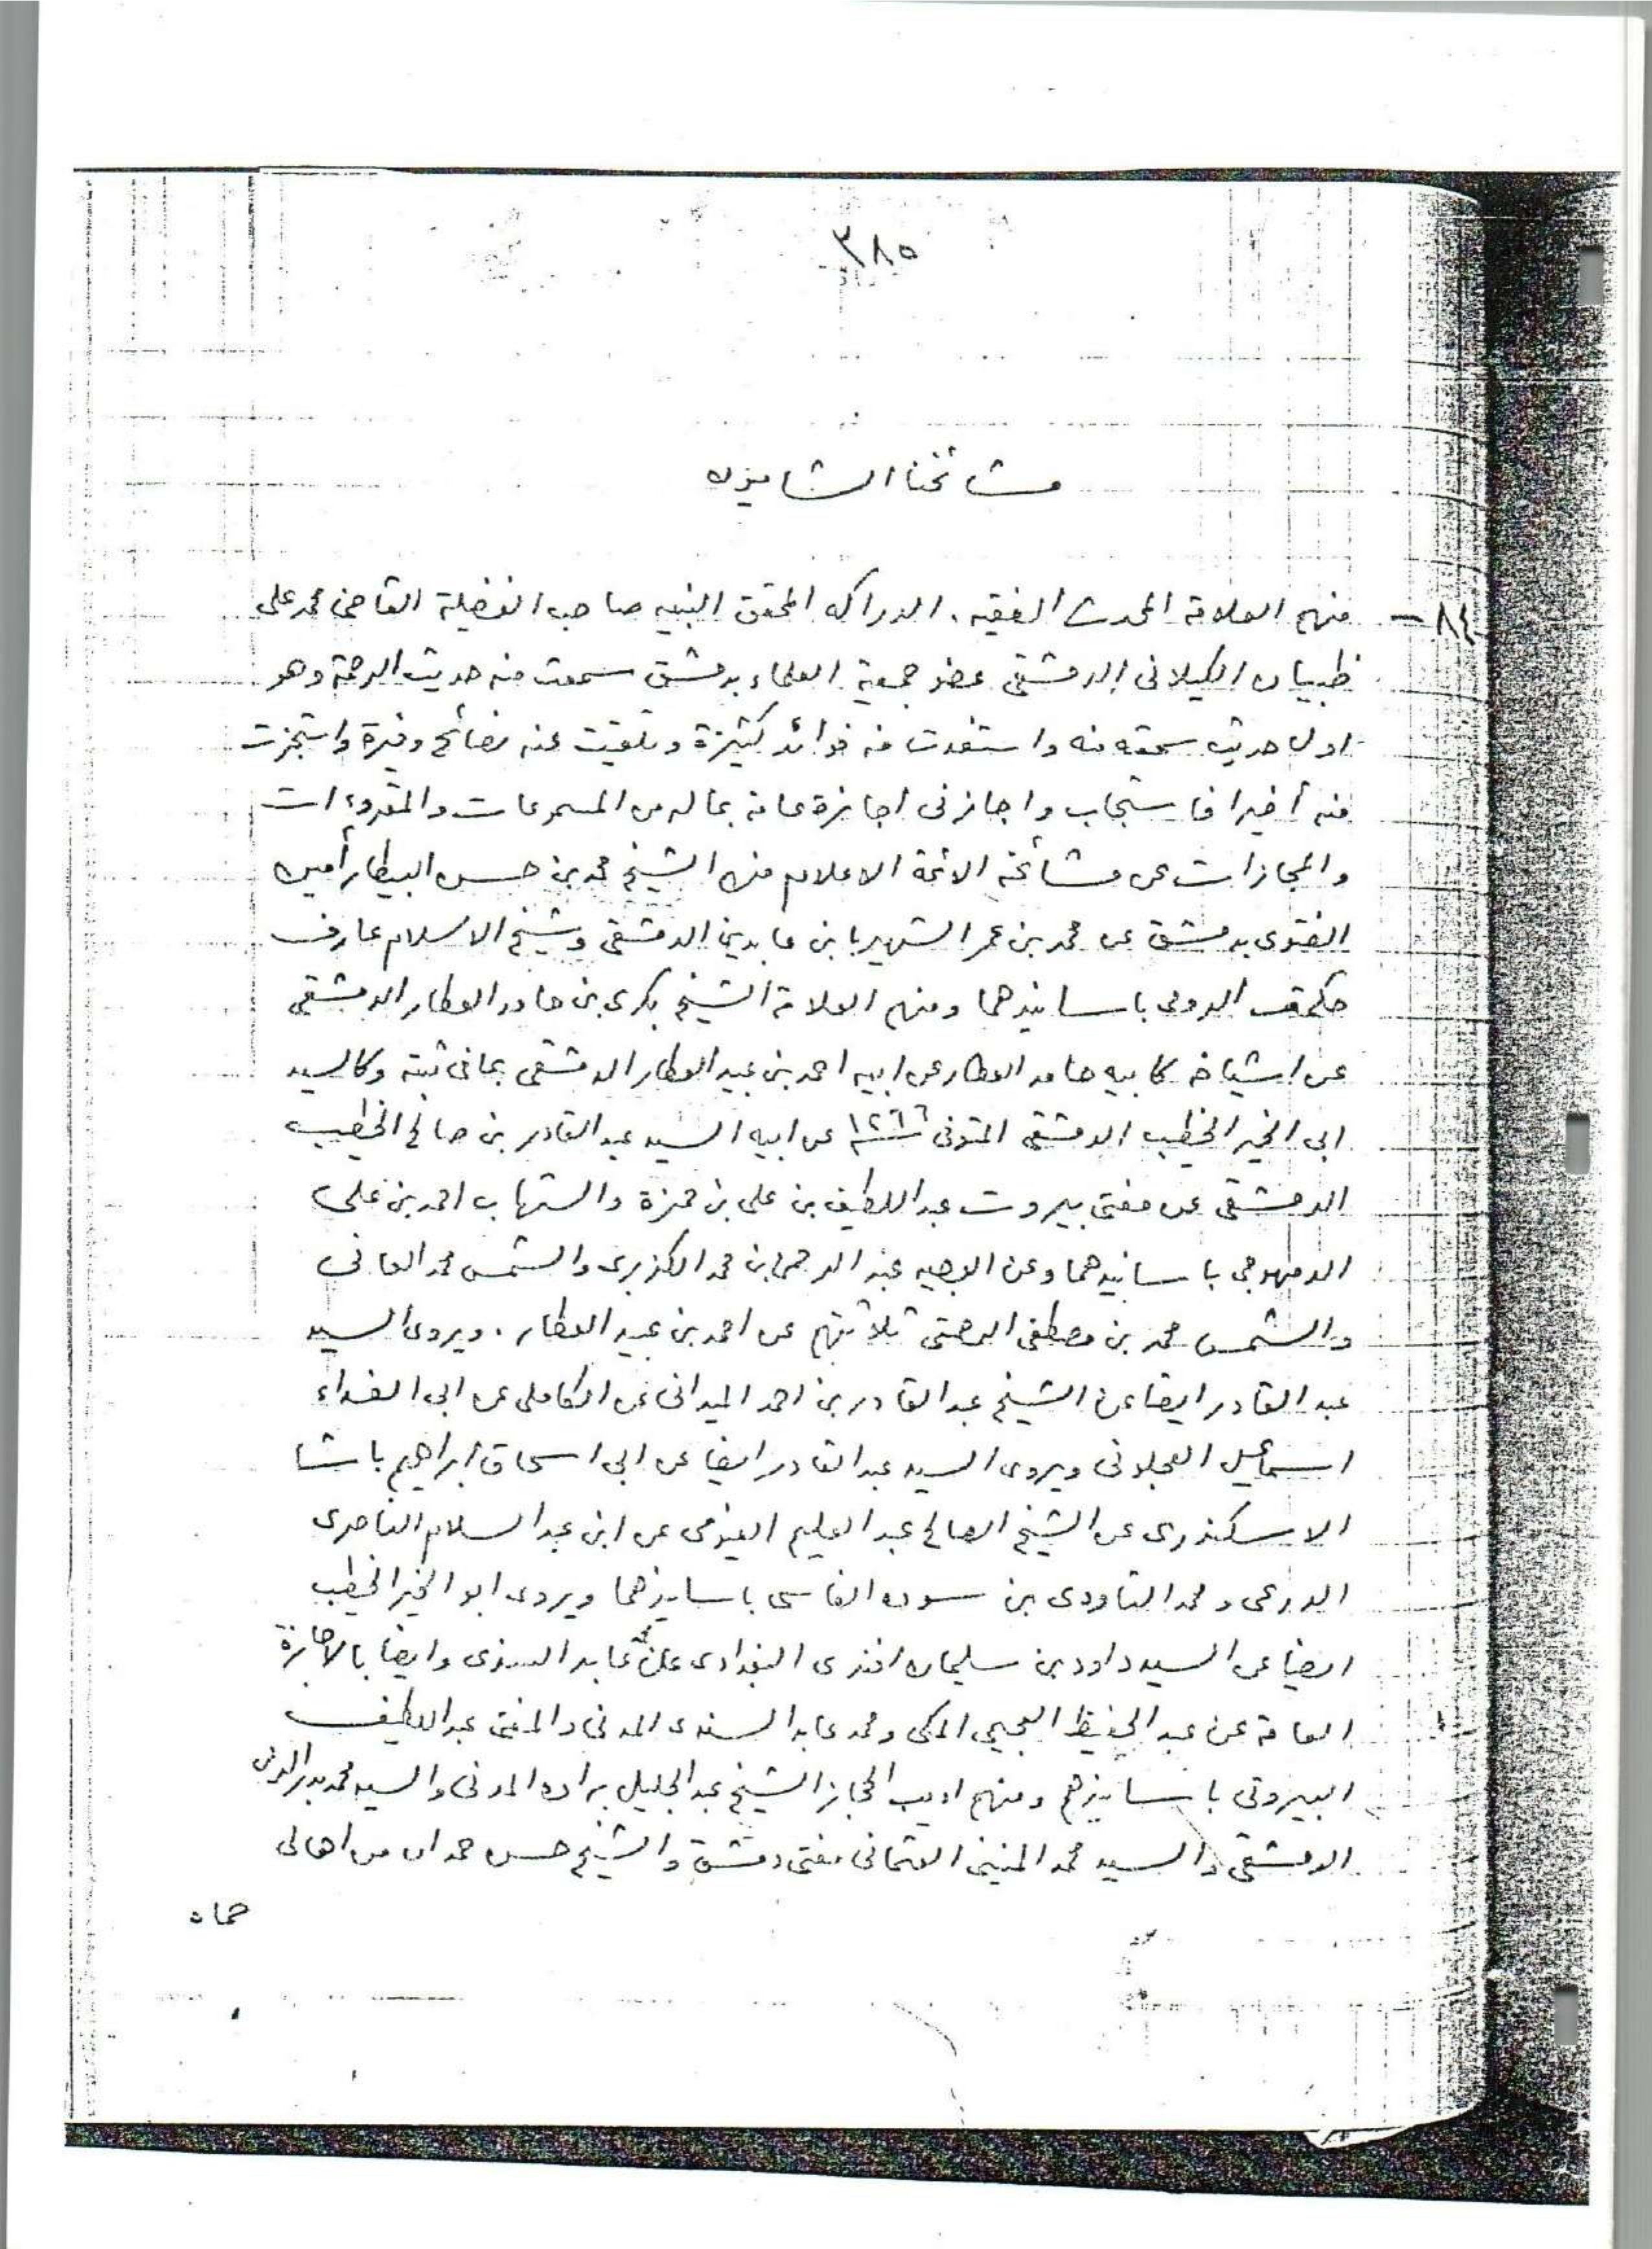 ٣٨٥
مشائخنا الشاميون
٨٤ - منهم العلامة المحدث الفقيه. الدراكه المحقق النبيه صاحب الفضيلة القاضى محمد على
ظبيان الكيلانى الدمشقى عضو جمعية العلماء بدمشق سمعت منه حديث الرحمة وهو
اول حديث سمعته منه واستفدت منه فوائد كثيرة وتلقيت عنه نصائح وفيرة واستجزت
منه أخيرا فاستجاب واجازنى اجازة عامة بماله من المسموعات والمقروءات
والمجازات عن مشائخه الائمة الاعلام منهم الشيخ محمد بن حسن البيطار أمين
الفتوى بدمشق عن محمد بن عمر الشهير بابن عابدين الدمشقى وشيخ الاسلام عارف
حكمت الرومى باسانيدهما ومنهم العلامة الشيخ بكرى بن حامد العطار الدمشقى
عن اشياخه كابيه حامد العطار عن ابيه احمد بن عبيد العطار الدمشقى بما فى ثبته وكالسيد
ابى الخير الخطيب الدمشقى المتوفى عن ابيه السيد عبد القادر بن صالح الخطيب
الدمشقى عن مفتى بيروت عبد اللطيف بن على بن حمزة والشهاب احمد بن على
الدمهوجى باسانيدهما وعن الوجيه عبد الرحمن بن محمد الكزبرى والشمس محمد العانى
والشمس محمد بن مصطفى الرحمتى ثلاثتهم عن احمد بن عبيد العطار. ويروى السيد
عبد القادر ايضا عن الشيخ عبد القادر بن احمد الميدانى عن الكاملى عن ابى الفداء
اسماعيل العجلونى ويروى السيد عبد القادر ايضا عن ابى اسحاق ابراهيم باشا
الاسكندرى عن الشيخ الصالح عبد العليم الفيومى عن ابن عبد السلام الناصرى
الدرعى ومحمد التاودى بن سوده الفاسى باسانيدهما ويروى ابو الخير الخطيب
ايضا عن السيد داود بن سليمان افندى البغدادى عن محمد عابد السندى وايضا بالاجازة
العامة عن عبد الحفيظ العجيمى المكى ومحمد عابد السندى المدنى والمفتى عبد اللطيف
البيروتى باسانيدهم ومنهم اديب الحجاز الشيخ عبد الجليل براده المدنى والسيد محمد بدر الدين
الدمشقى والسيد محمد المنينى العثمانى مفتى دمشق والشيخ حسن حمدان من اهالى
حماه